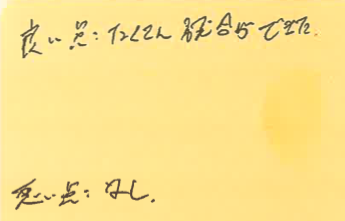 良い点:たくさん試合ができた.
悪い点:なし.